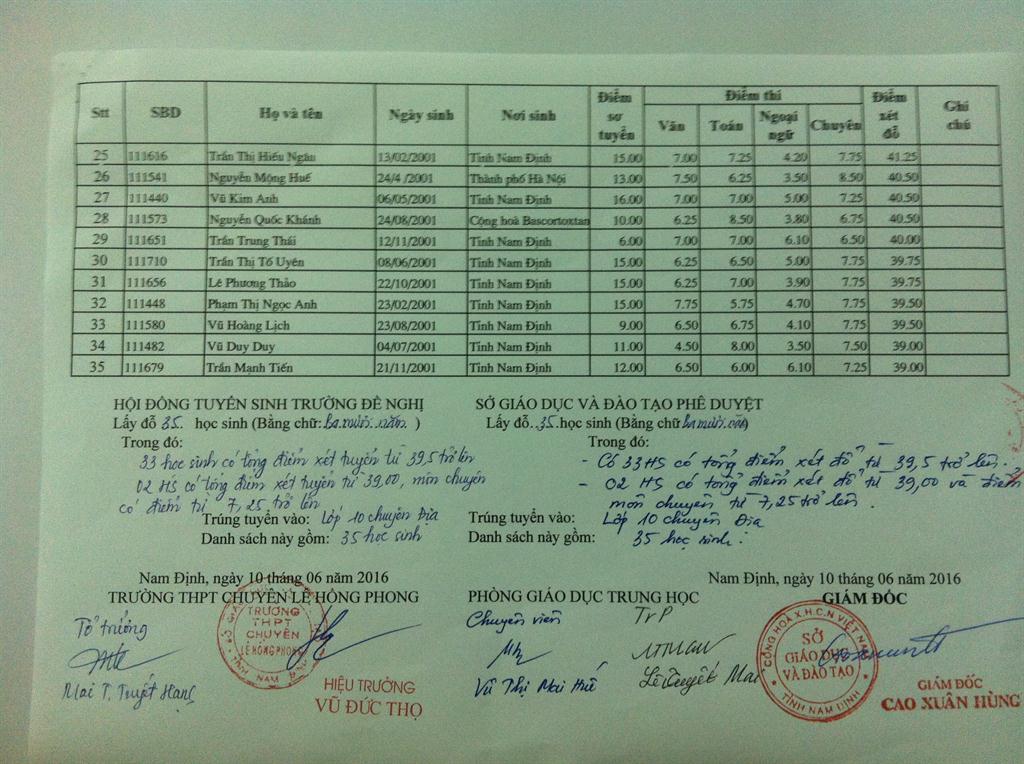 Stt SBD Họ và tên Ngày sinh Nơi sinh Điểm sơ tuyển Điểm thi Điểm xét đỗ Ghi chú
Văn Toán Ngoại ngữ Chuyên
25 111616 Trần Thị Hiếu Ngân 13/02/2001 Tỉnh Nam Định 15.00 7.00 7.25 4.20 7.75 41.25
26 111541 Nguyễn Mộng Huế 24/4 /2001 Thành phố Hà Nội 13.00 7.50 6.25 3.50 8.50 40.50
27 111440 Vũ Kim Anh 06/05/2001 Tỉnh Nam Định 16.00 7.00 7.00 5.00 7.25 40.50
28 111573 Nguyễn Quốc Khánh 24/08/2001 Cộng hoà Bascortoxtan 10.00 6.25 8.50 3.80 6.75 40.50
29 111651 Trần Trung Thái 12/11/2001 Tỉnh Nam Định 6.00 7.00 7.00 6.10 6.50 40.00
30 111710 Trần Thị Tố Uyên 08/06/2001 Tỉnh Nam Định 15.00 6.25 6.50 5.00 7.75 39.75
31 111656 Lê Phương Thảo 22/10/2001 Tỉnh Nam Định 15.00 6.25 7.00 3.90 7.75 39.75
32 111448 Phạm Thị Ngọc Anh 23/02/2001 Tỉnh Nam Định 15.00 7.75 5.75 4.70 7.75 39.50
33 111580 Vũ Hoàng Lịch 23/08/2001 Tỉnh Nam Định 9.00 6.50 6.75 4.10 7.75 39.50
34 111482 Vũ Duy Duy 04/07/2001 Tỉnh Nam Định 11.00 4.50 8.00 3.50 7.50 39.00
35 111679 Trần Mạnh Tiến 21/11/2001 Tỉnh Nam Định 12.00 6.50 6.00 6.10 7.25 39.00
HỘI ĐỒNG TUYỂN SINH TRƯỜNG ĐỀ NGHỊ
Lấy đỗ 35 học sinh (Bằng chữ: Ba mươi năm )
Trong đó:
33 học sinh có tổng điểm xét tuyển từ 39,5 trở lên
02 HS có tổng điểm xét tuyển từ 39,00, môn chuyên
có điểm từ 7,25 trở lên
Trúng tuyển vào: Lớp 10 chuyên Địa
Danh sách này gồm: 35 học sinh
SỞ GIÁO DỤC VÀ ĐÀO TẠO PHÊ DUYỆT
Lấy đỗ..35.học sinh (Bằng chữ Ba mươi năm)
Trong đó:
- Có 33 HS có tổng điểm xét đỗ từ 39,5 trở lên.
- 02 HS có tổng điểm xét đỗ từ 39,00 và điểm
môn chuyên từ 7,25 trở lên.
Trúng tuyển vào: Lớp 10 chuyên Địa
Danh sách này gồm: 35 học sinh.
Nam Định, ngày 10 tháng 06 năm 2016
TRƯỜNG THPT CHUYÊN LÊ HỒNG PHONG
Tổ trưởng
Mai T. Tuyết Hạnh
TRƯỜNG
THPT
CHUYÊN
LÊ HỒNG PHONG
TỈNH NAM ĐỊNH
HIỆU TRƯỞNG
VŨ ĐỨC THỌ
PHÒNG GIÁO DỤC TRUNG HỌC
Chuyên viên TrP
Vũ Thị Mai Huê Lê Tuyết Mai
Nam Định, ngày 10 tháng 06 năm 2016
GIÁM ĐỐC
CỘNG HOÀ X.H.C.N VIỆT NAM
SỞ
GIÁO DỤC
VÀ ĐÀO TẠO
TỈNH NAM ĐỊNH
GIÁM ĐỐC
CAO XUÂN HÙNG